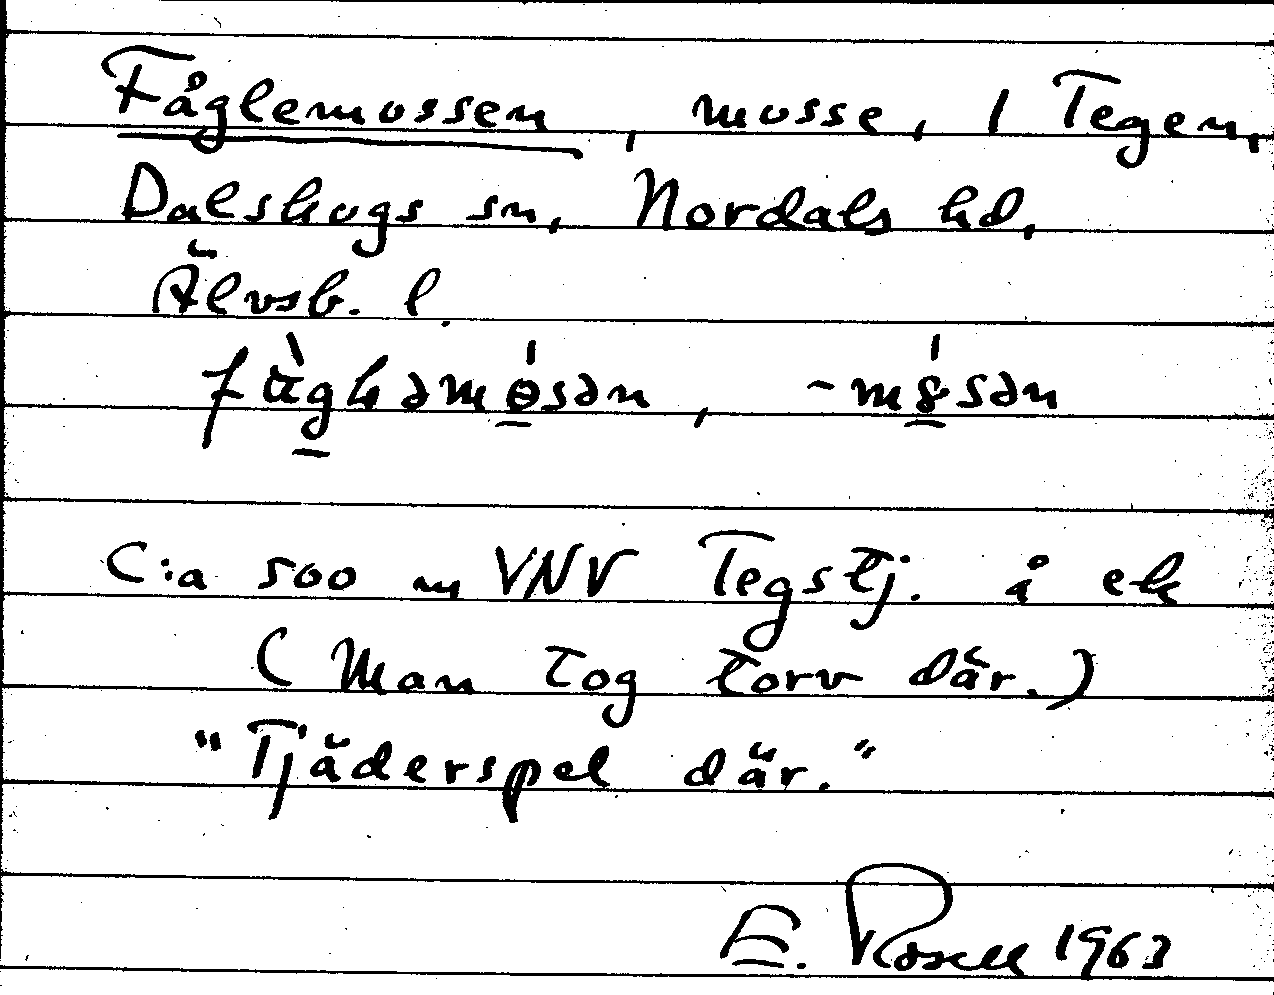 Fåglemossen, mosse, 1 Tegen,
Dalskogs sn, Nordals hd,
Älvsb. l.
-
C:a 500 m VNV Tegstj. å ek
(Man tog torv där.)
"Tjäderspel där."
E. Rosell 1963